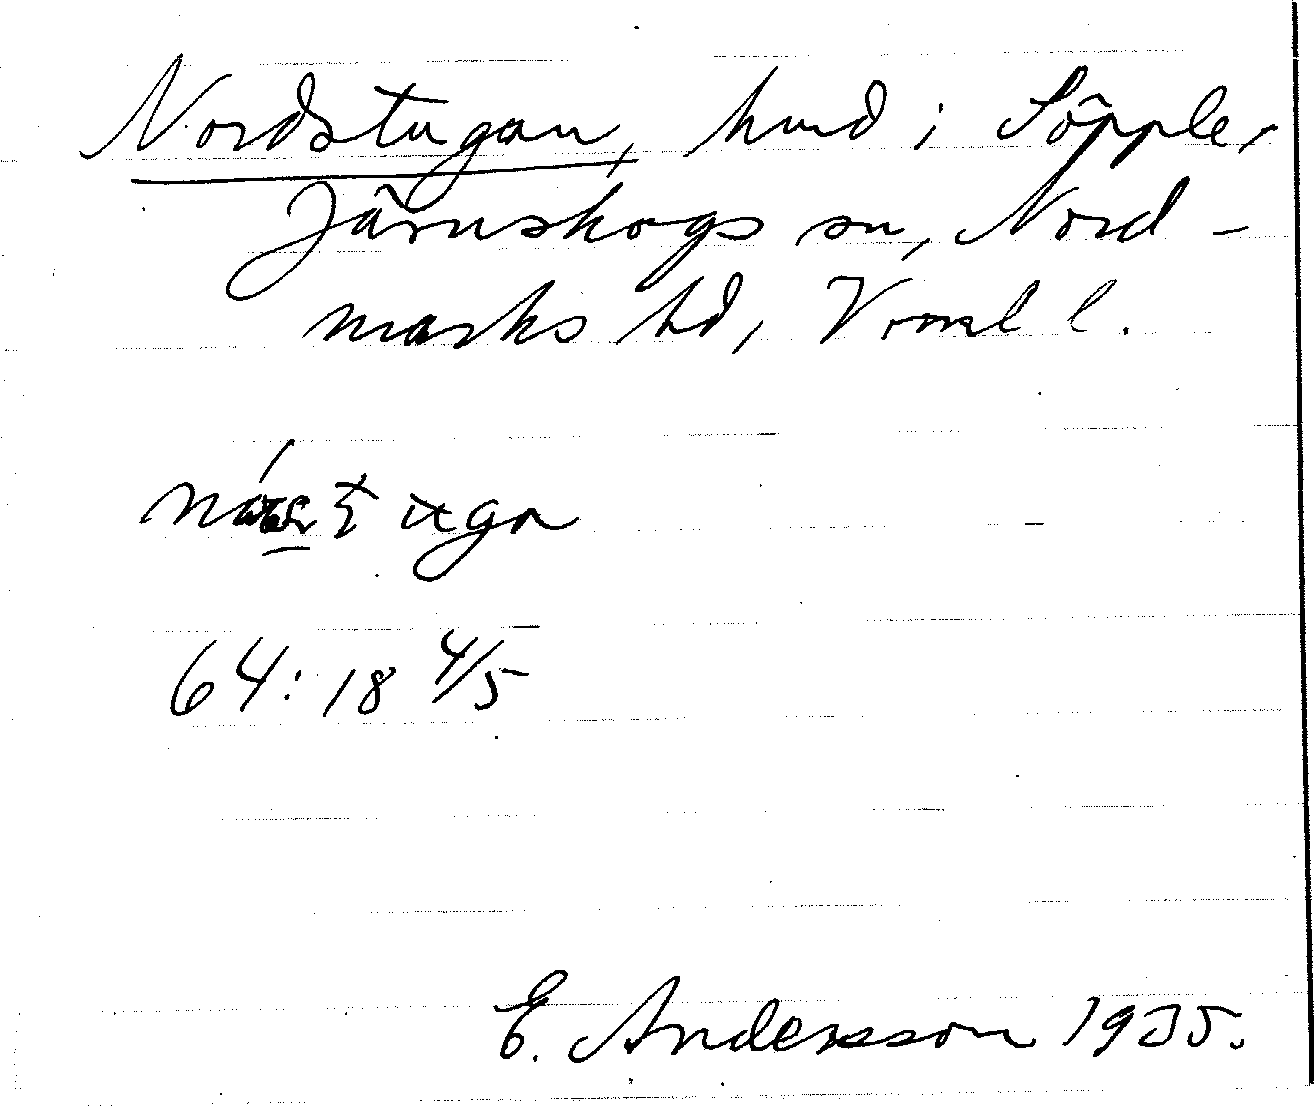 Nordstugan, hmd i Söpple,
Järnskogs sn, Nord-
marks hd, Vrml l.
64:18 4/5
E. Andersson 1935.